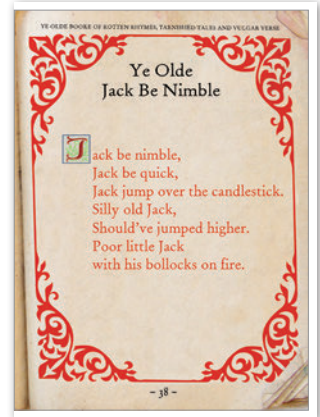 YE OLDE BOOKE OF ROTTEN RHYMES, TARNISHED TALES AND VULGAR VERSE
Ye Olde
Jack Be Nimble
Jack be nimble,
Jack be quick,
Jack jump over the candlestick.
Silly old Jack,
Should've jumped higher.
Poor little Jack
with his bollocks on fire.
- 38 -